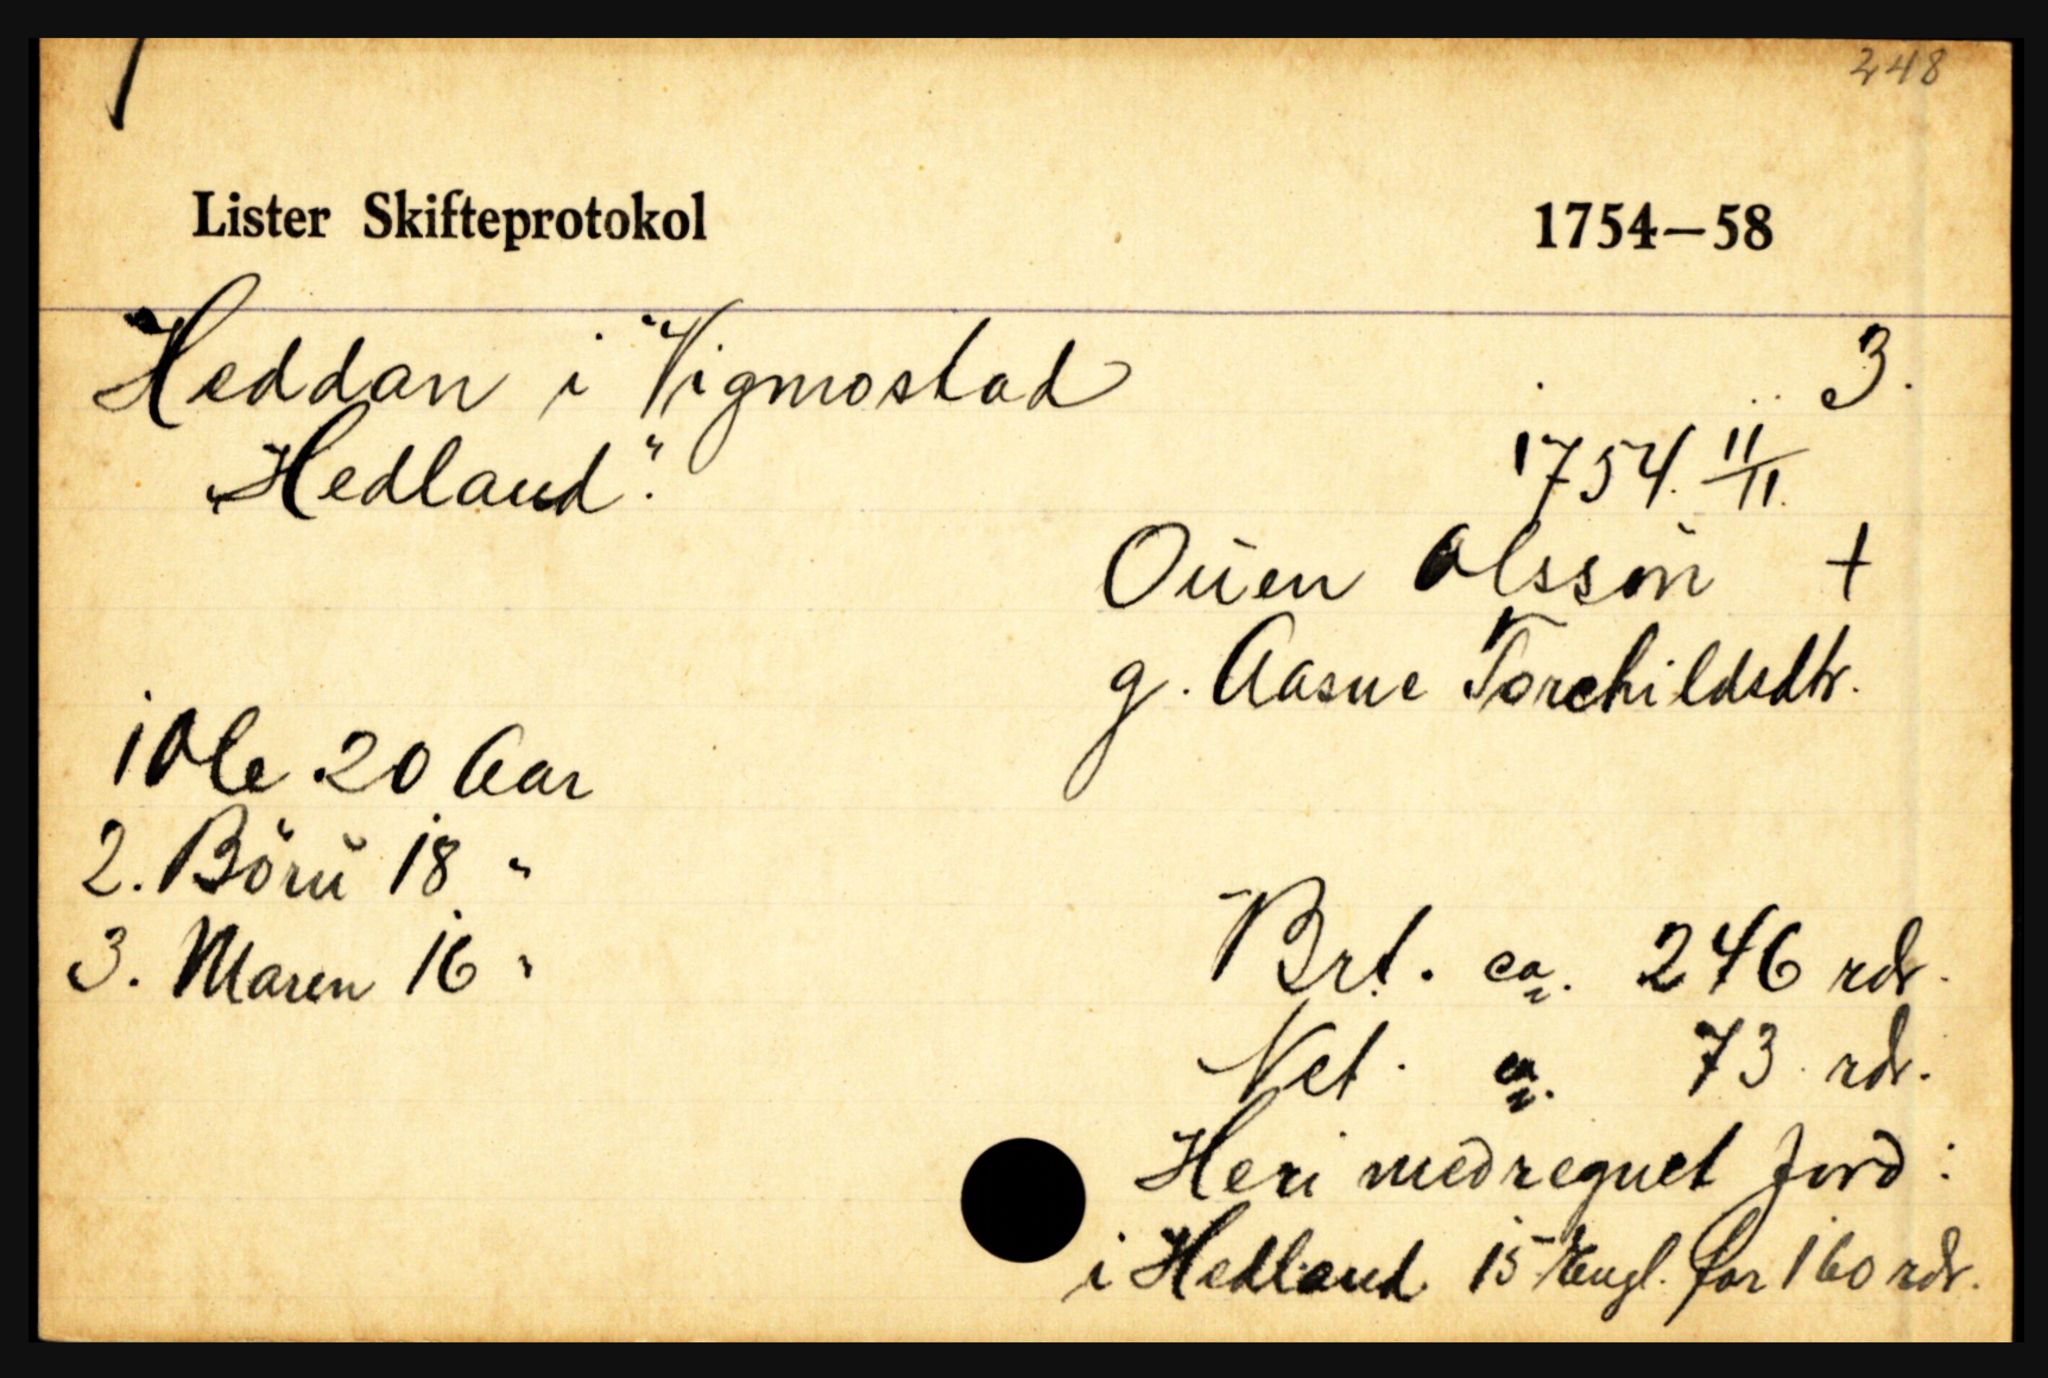 248
Lister Skifteprotokol 1754—58
Heddan i Vigmostad 3.
"Hedland".
1754. 11/11.
Ouen Olsson †
g. Aasne Torchildsdtr.
1 Ole 20 Aar
2. Böru 18 "
3. Maren 16 "
Brt. ca. 246 rdr.
Net. ca. 73 rdr.
Heri medregnet Jord:
i Hedland 15 Engl. for 160 rdr.